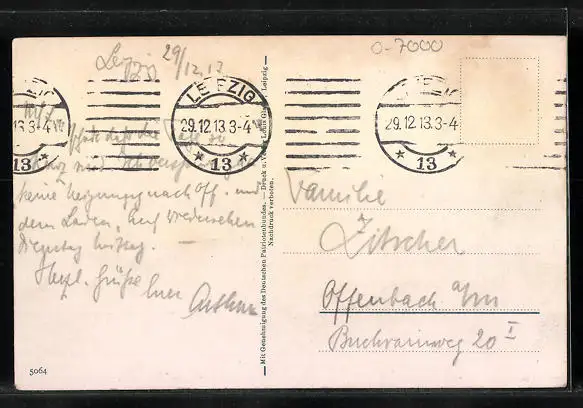 Leipzig 29/12.13
o-7000
LEIPZIG
29.12.13.3-4
13
LEIPZIG
29.12.13.3-4
13
3-4
13
keine Neigung nach Off. und
dem Laden, auf Wiedersehen
Dienstag Mittag. —
Herzl. Grüße Euer Arthur
Familie
Zitscher
Offenbach a/m
Buchrainweg 20 I
— Mit Genehmigung des Deutschen Patriotenbundes. — Druck u. Verlag Louis Leipzig —
Nachdruck verboten.
5064